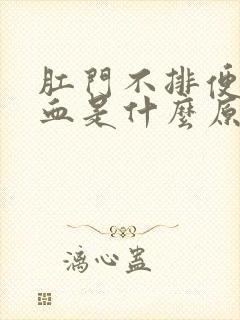 肛門不排便
血是什麼原
漓心蠱